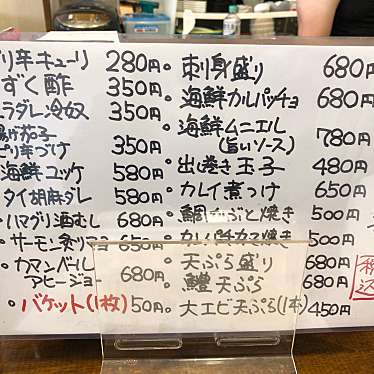 リ辛キューリ 280円
ずく酢 350円
ラダレ冷奴 350円
揚げ茄子
ピリ辛づけ 350円
海鮮ユッケ 580円
タイ胡麻ダレ 580円
ハマグリ酒むし 680円
サーモン炙り 650円
カマンベール
アヒージョ 680円
バケット(1枚) 50円
刺身盛り 680円
海鮮カルパッチョ 680円
海鮮ムニエル
(旨いソース) 780円
出し巻き玉子 480円
カレイ煮つけ 650円
鯛かぶと焼き 500円
カンパチカマ焼き 500円
天ぷら盛り 680円
鱧天ぷら 680円
大エビ天ぷら(1本) 450円
税込